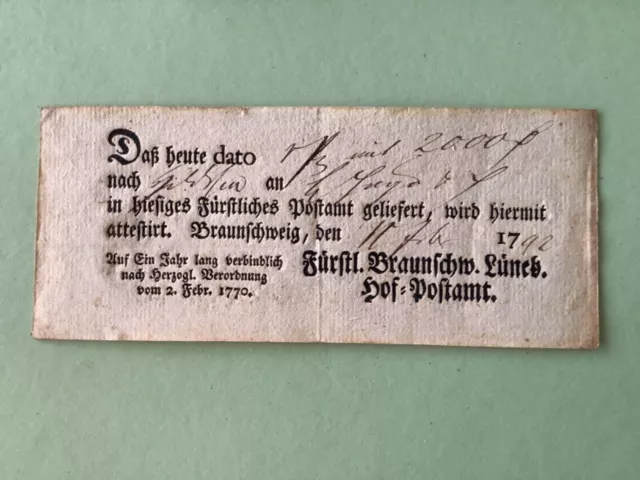 Daß heute dato mit 2000
nach an
in hiesiges Fürstliches Postamt geliefert, wird hiermit
attestirt. Braunschweig, den 11 Feb 1792
Auf Ein Jahr lang verbindlich
nach Herzogl. Verordnung
vom 2. Febr. 1770.
Fürstl. Braunschw. Lüneb.
Hof-Postamt.